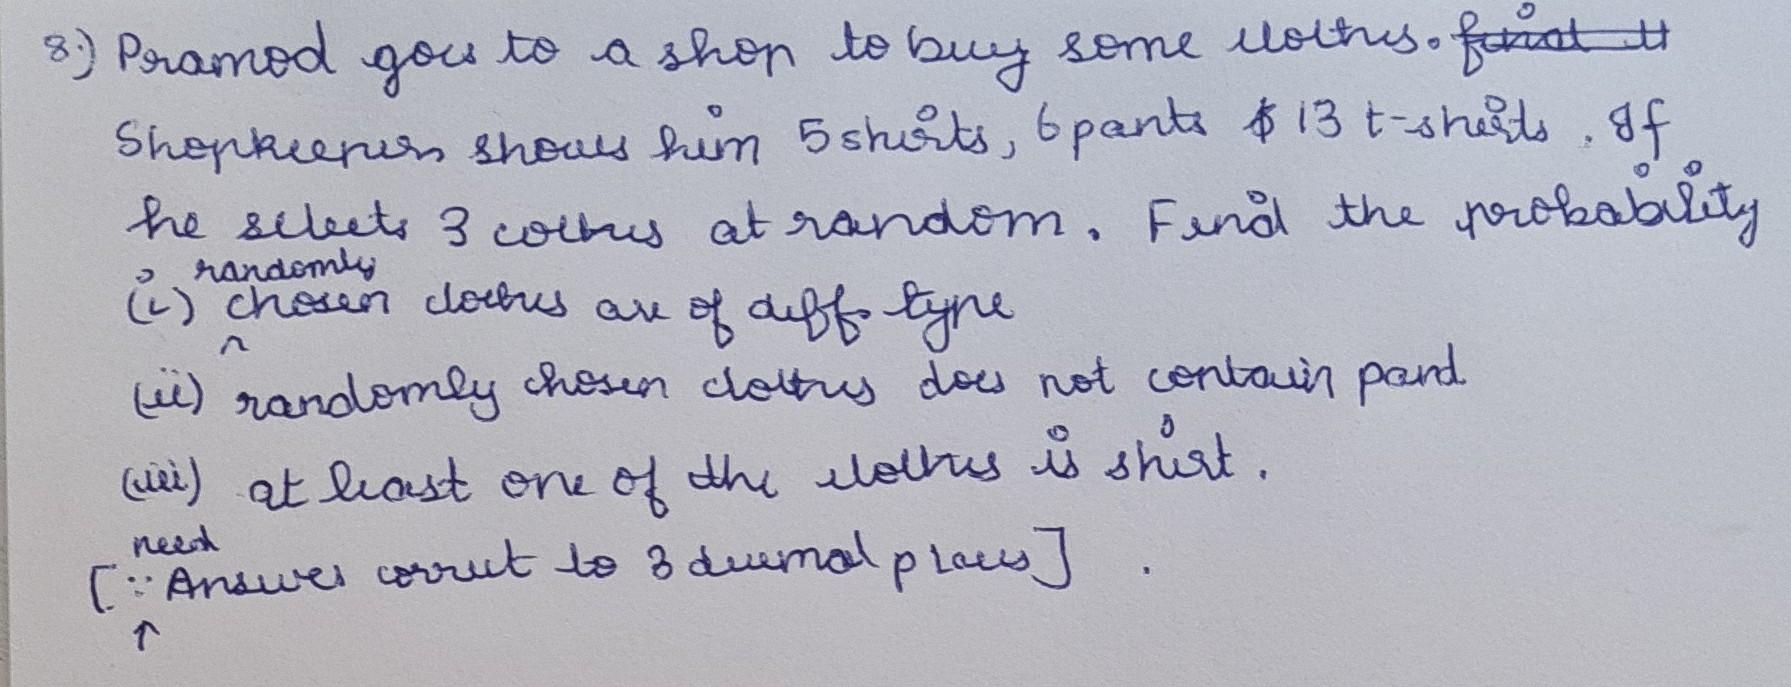 8.) Pramod goes to a shop to buy some clothes.
Shopkeeper shows him 5 shirts, 6 pants & 13 t-shirts. If
he selects 3 cothes at random. Find the probability
randomly
(i) chosen clothes are of diff. type
(ii) randomly chosen clothes does not contain pand
(iii) at least one of the clothes is shirt.
need
[∵ Answer correct to 3 decimal places] .